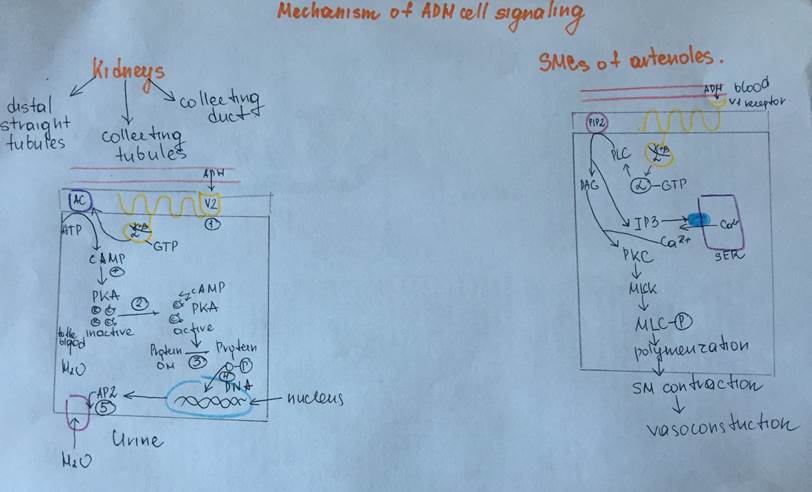 Mechanism of ADH cell signaling
Kidneys
distal
straight
tubules
collecting
tubules
collecting
ducts
ADH
AC
V2
1
ATP
GTP
cAMP
PKA
inactive
2
cAMP
PKA
active
to the
blood
H2O
Protein
OH
3
Protein
O-P
4
DNA
AP2
5
nucleus
Urine
H2O
SMCs of arterioles.
ADH
blood
V1 receptor
PIP2
PLC
α
GTP
DAG
IP3
Ca2+
Ca2+
SER
PKC
MLCK
MLC-P
polymerization
SM contraction
vasoconstuction